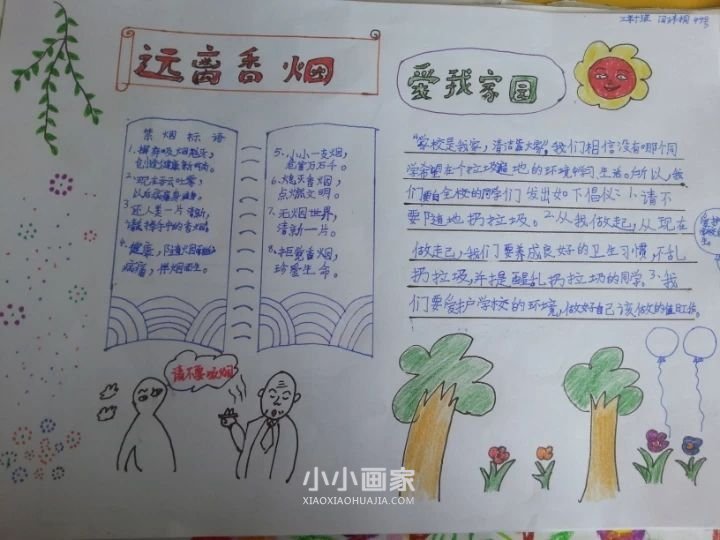 远离香烟
爱我家园
禁烟标语
1.摒弃吸烟
创健康新时尚。
以后
3.还人类一片清新,
健康,
病痛,
5.小小一支烟,
危害万万千。
6.熄灭香烟,
点燃文明。
7.无烟世界,
清新一片。
8.拒绝香烟,
珍爱生命。
请不要吸烟
"学校是我家,清洁靠大家",我们相信没有哪个同
学希望在个垃圾 地的环境中学习、生活。所以,我
们向全校的同学们发出如下倡仪:1.请不
要随地扔垃圾。2.从我做起,从现在
做起,我们要养成良好的卫生习惯,不乱
扔垃圾,并提醒乱扔垃圾的同学。3.我
们要爱护学校的环境,做好自己该做的值日工作。
小小画家
XIAOXIAOHUAJIA.COM